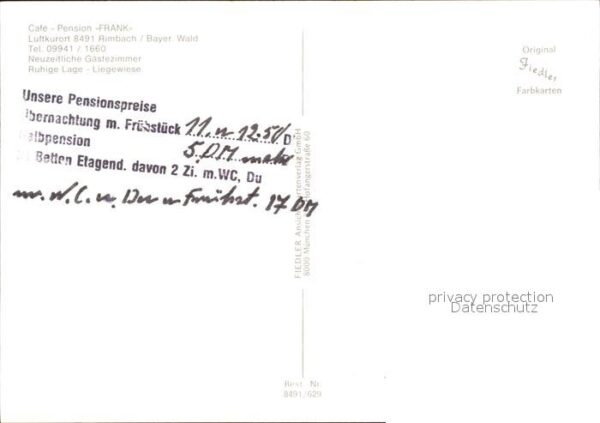 Café - Pension »FRANK«
Luftkurort 8491 Rimbach / Bayer. Wald
Tel. 09941 / 1660
Neuzeitliche Gästezimmer
Ruhige Lage - Liegewiese
Original
Fiedler
Farbkarten
Unsere Pensionspreise
Übernachtung m. Frühstück 11.u 12.50 D
Halbpension 5.DM mehr
Betten Etagend. davon 2 Zi. m.WC, Du
W.C. u. Frühst. 17 DM
FIEDLER Ansichtskartenverlag GmbH
8000 München
privacy protection
Datenschutz
Best. Nr.
8491/629